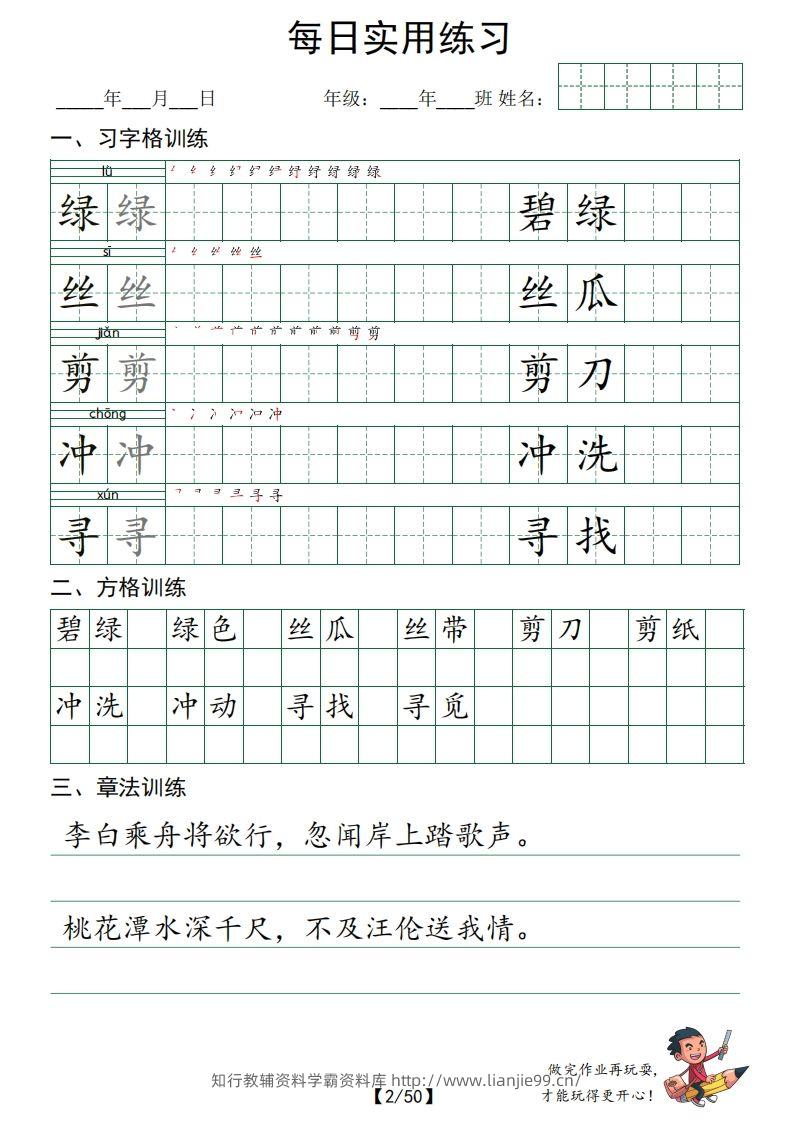 每日实用练习
_____年___月___日 年级：____年____班 姓名：
一、习字格训练
lǜ
绿 绿 碧 绿
sī
丝 丝 丝 瓜
jiǎn
剪 剪 剪 刀
chōng
冲 冲 冲 洗
xún
寻 寻 寻 找
二、方格训练
碧 绿 绿 色 丝 瓜 丝 带 剪 刀 剪 纸
冲 洗 冲 动 寻 找 寻 觅
三、章法训练
李白乘舟将欲行，忽闻岸上踏歌声。
桃花潭水深千尺，不及汪伦送我情。
做完作业再玩耍，
知行教辅资料学霸资料库 http://www.lianjie99.cn/
才能玩得更开心！
【2/50】